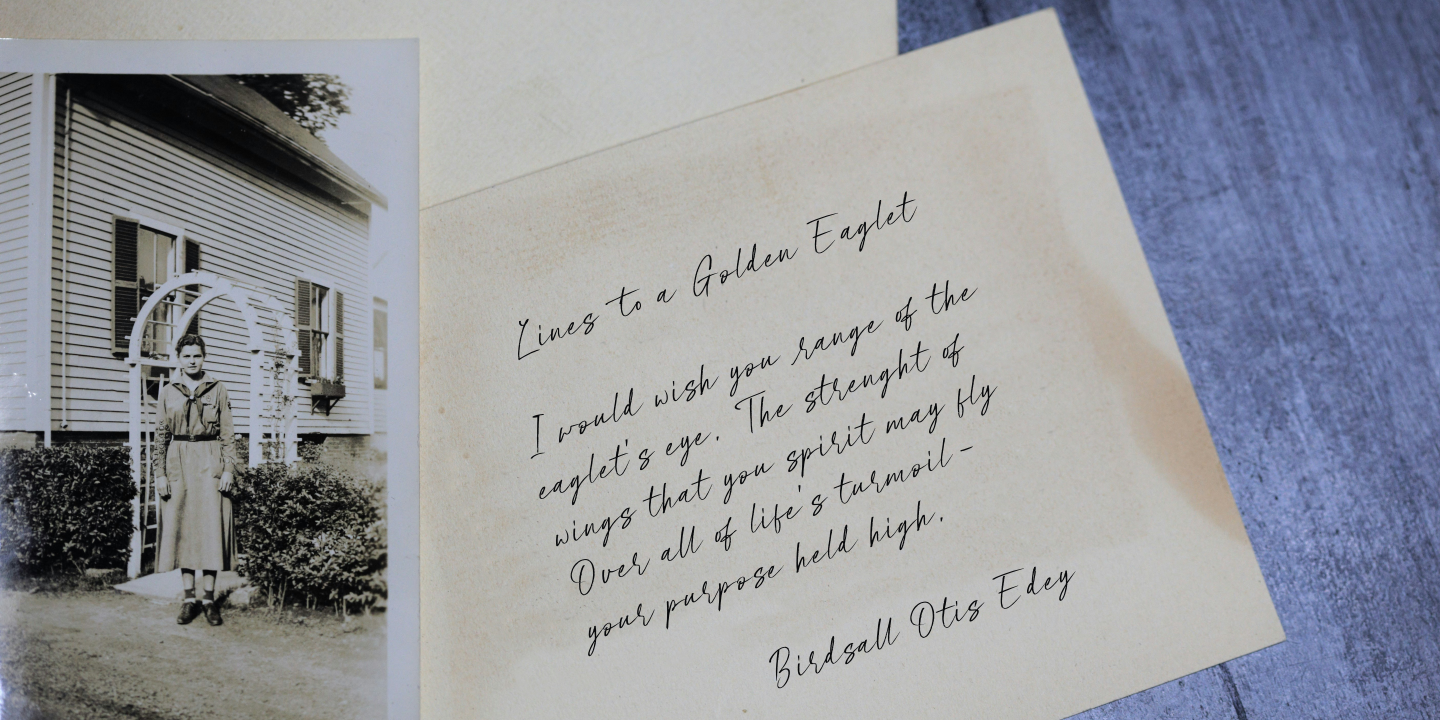 Lines to a Golden Eaglet
I would wish you range of the
eaglet's eye. The strenght of
wings that you spirit may fly
Over all of life's turmoil -
your purpose held high.
Birdsall Otis Edey